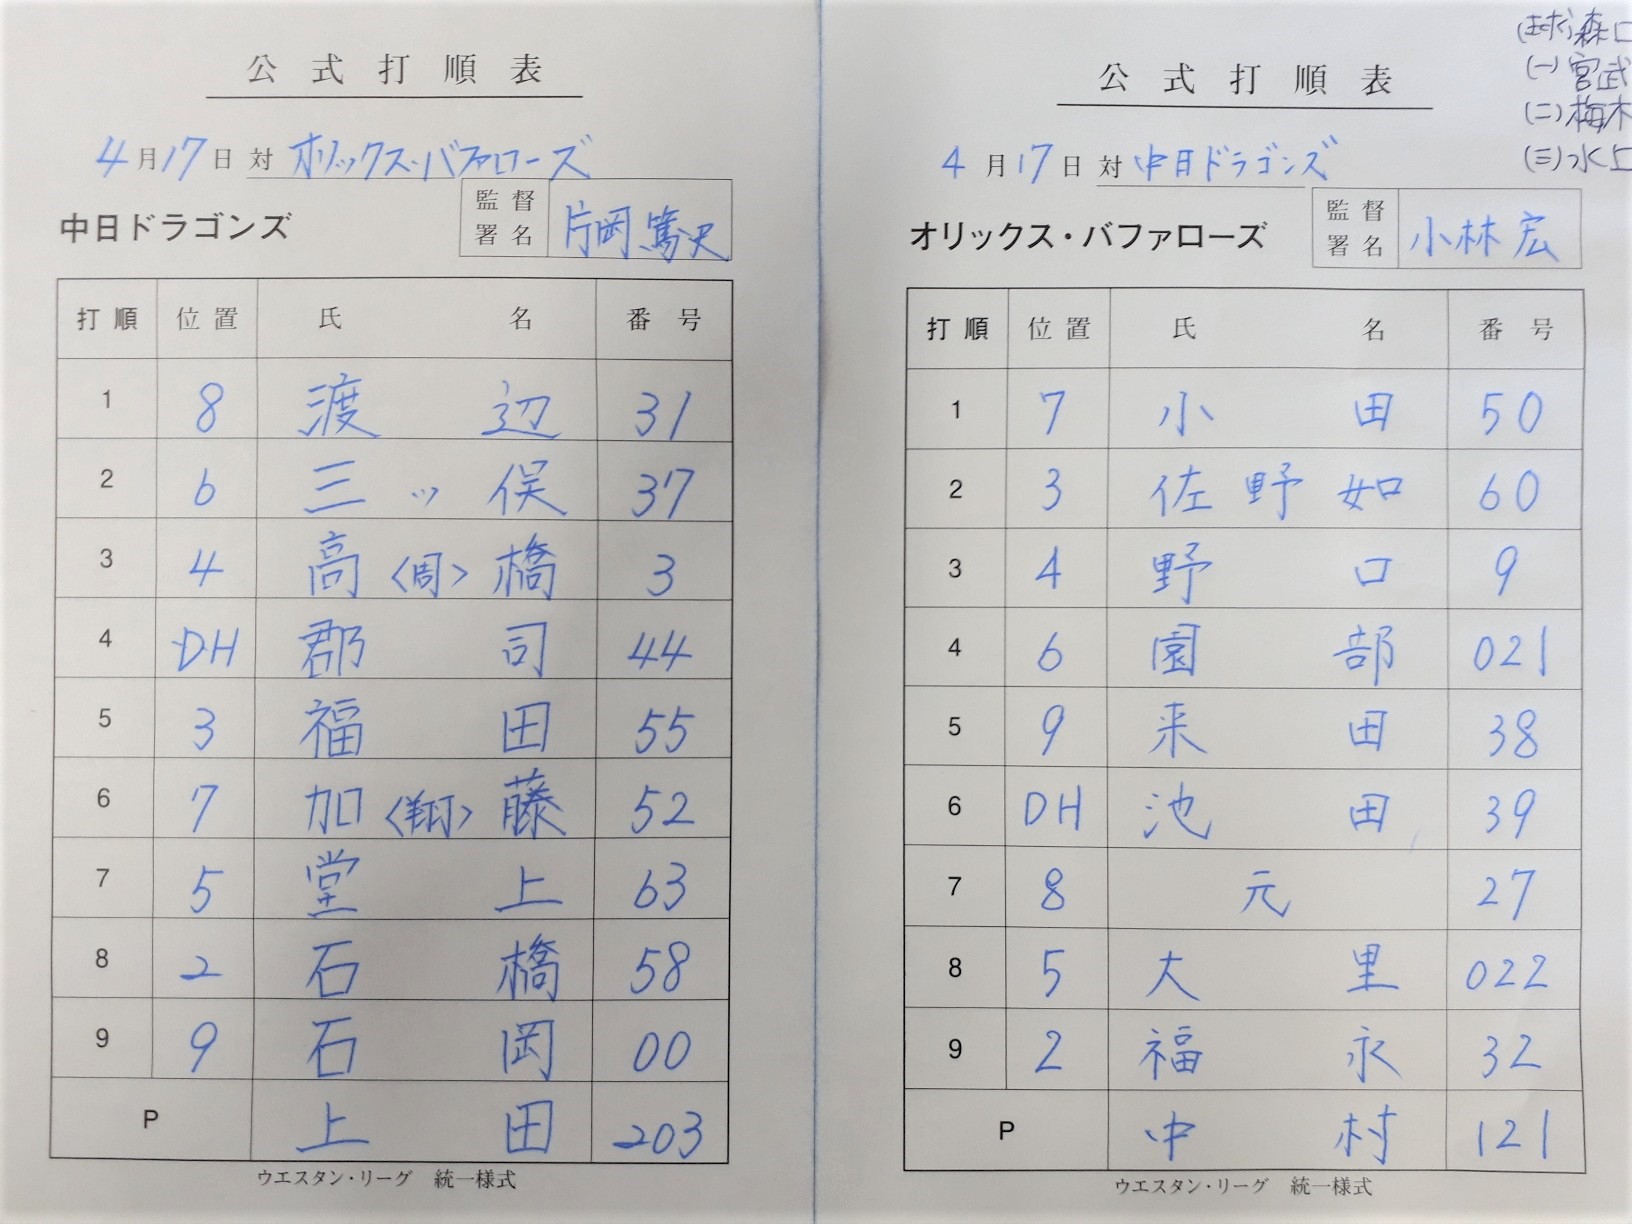 公式打順表
4月17日 対 オリックス・バファローズ
中日ドラゴンズ
監督署名 片岡篤史
打順 位置 氏名 番号
1 8 渡辺 31
2 6 三ッ俣 37
3 4 高〈周〉橋 3
4 DH 郡司 44
5 3 福田 55
6 7 加〈翔〉藤 52
7 5 堂上 63
8 2 石橋 58
9 9 石岡 00
P 上田 203
ウエスタン・リーグ 統一様式
(球)森口
(一)宮武
(二)梅木
(三)水上
公式打順表
4月17日 対 中日ドラゴンズ
オリックス・バファローズ
監督署名 小林宏
打順 位置 氏名 番号
1 7 小田 50
2 3 佐野如 60
3 4 野口 9
4 6 園部 021
5 9 来田 38
6 DH 池田 39
7 8 元 27
8 5 大里 022
9 2 福永 32
P 中村 121
ウエスタン・リーグ 統一様式